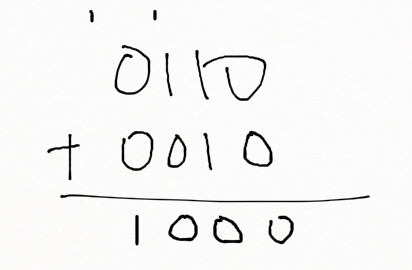 ' '
0110
+ 0010
1000